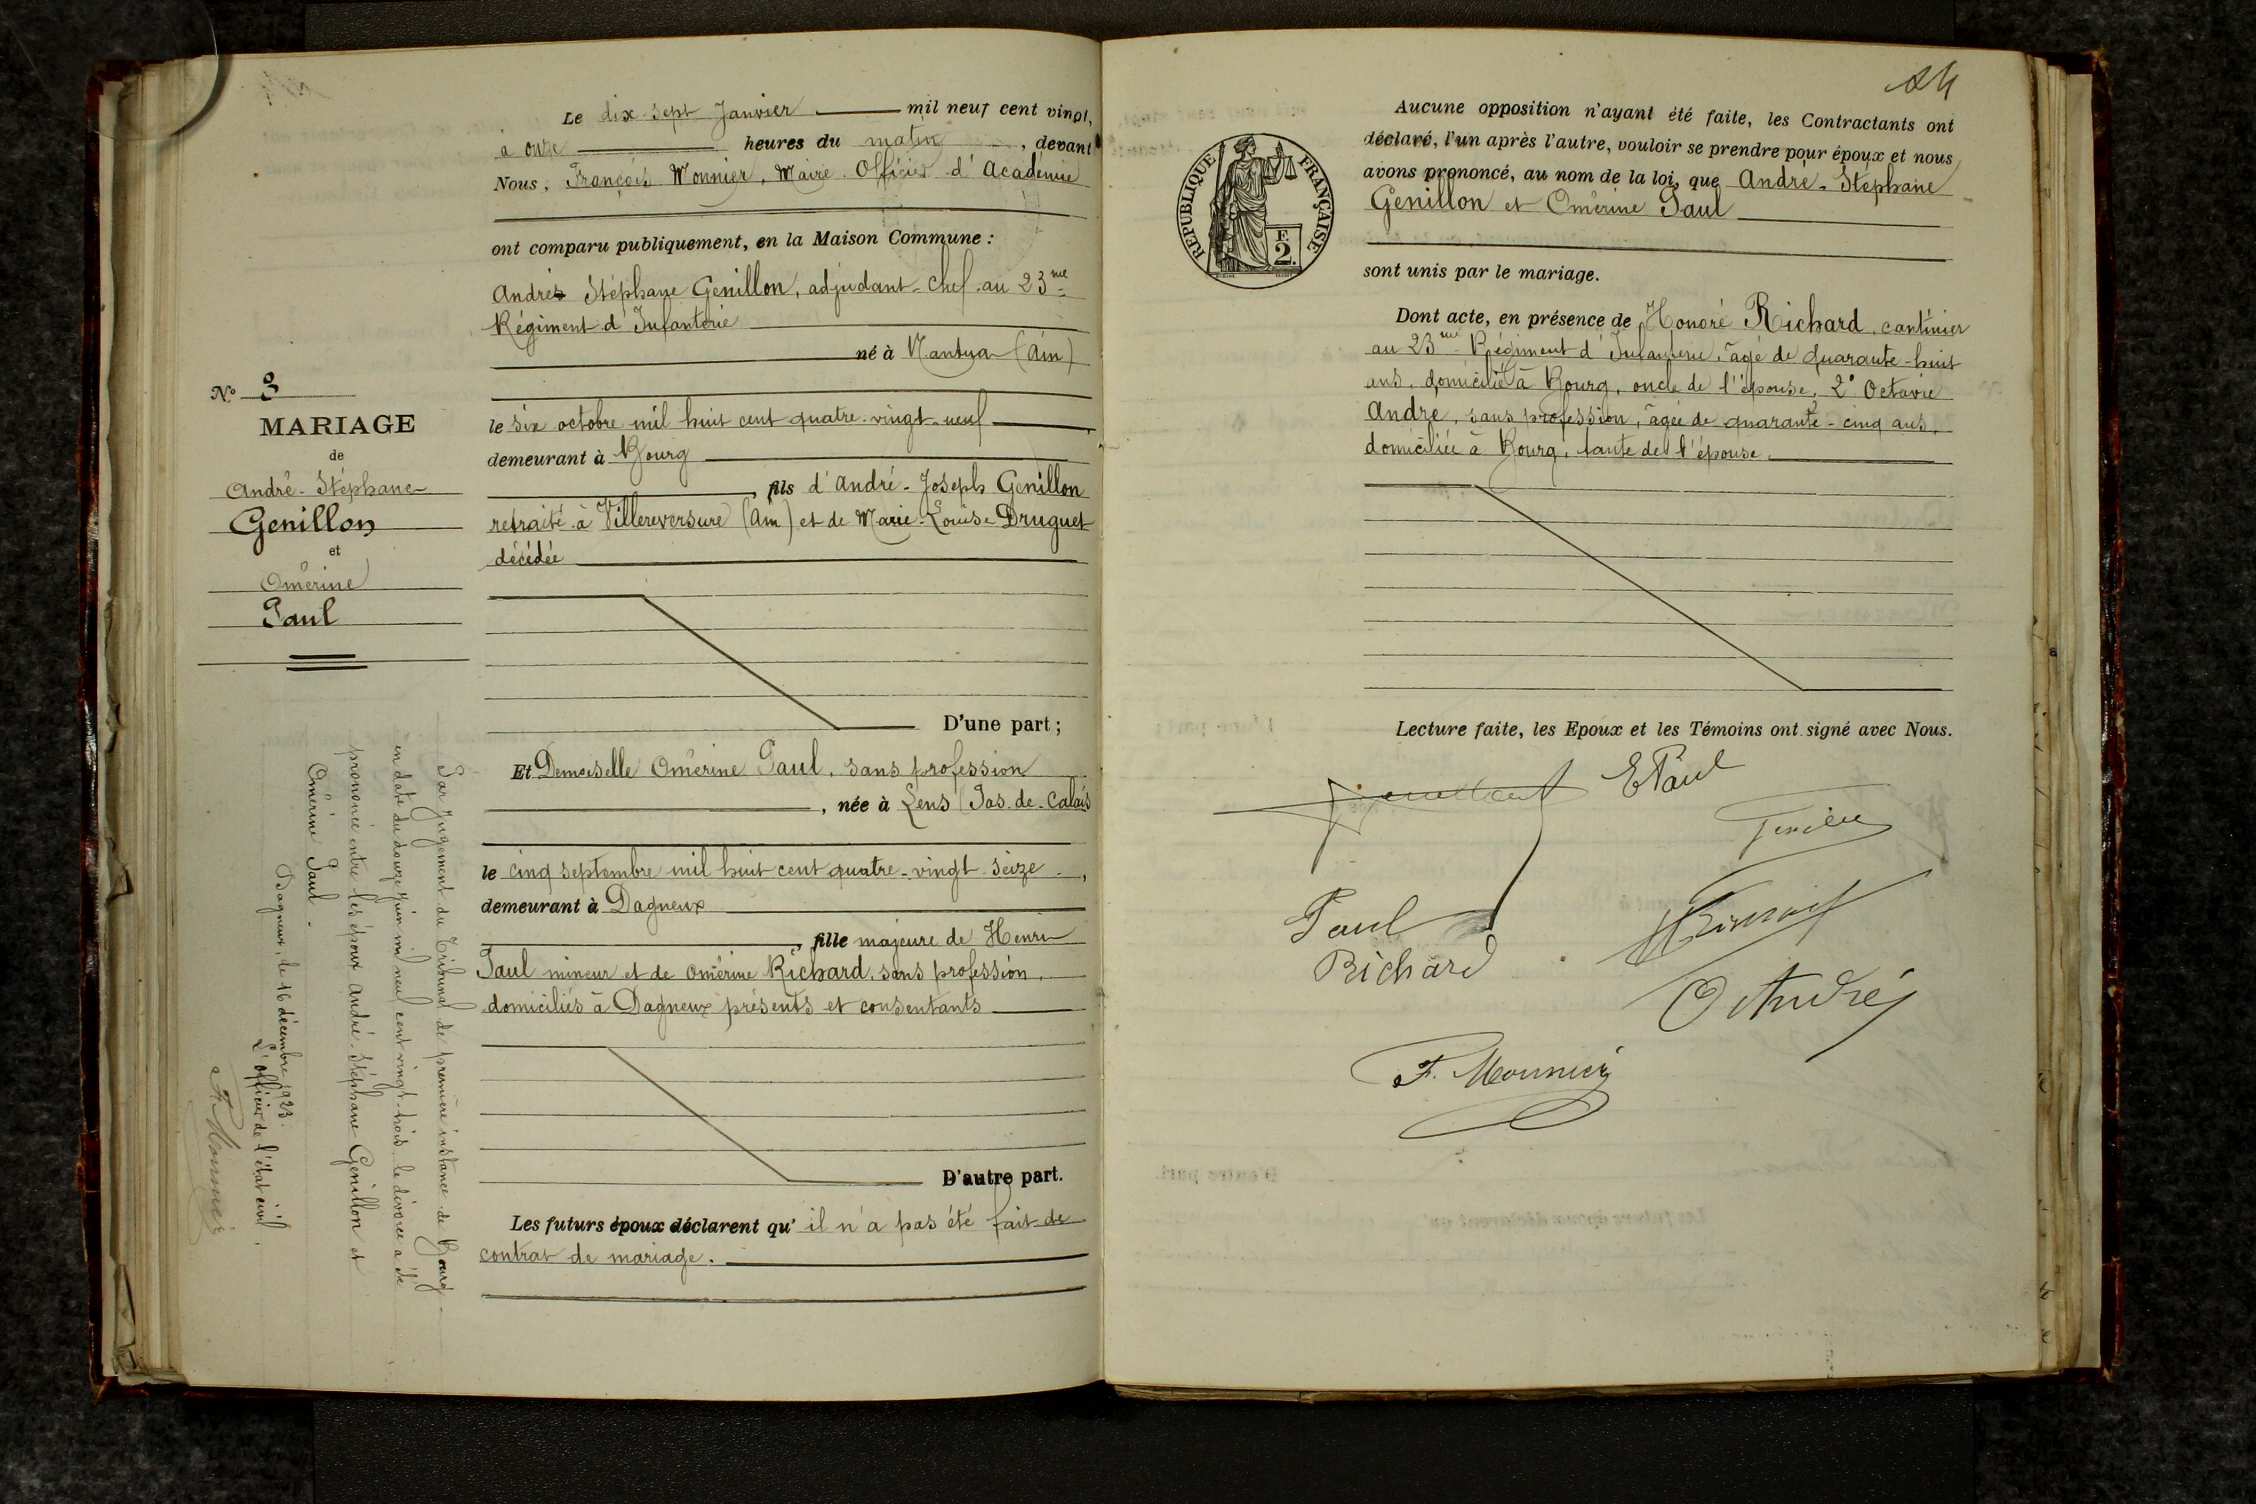 Le dix-sept Janvier mil neuf cent vingt,
à onze heures du matin, devant
Nous, François Monnier, Maire. Officier d'Académie
ont comparu publiquement, en la Maison Commune :
André Stéphane Genillon, adjudant-chef au 23me
Régiment d'Infanterie
né à Nantua (Ain)
le six octobre mil huit cent quatre-vingt-neuf
demeurant à Bourg
, fils d'André-Joseph Genillon
retraité à Villereversure (Ain) et de Marie-Louise Druguet
décédée
D'une part ;
Et Demoiselle Omérine Paul, sans profession
, née à Lens (Pas-de-Calais
le cinq septembre mil huit cent quatre-vingt seize,
demeurant à Dagneux
, fille majeure de Henri
Paul mineur et de Omérine Richard, sans profession,
domiciliés à Dagneux présents et consentants
D'autre part.
Les futurs époux déclarent qu'il n'a pas été fait de
contrat de mariage.
N° 3
MARIAGE
de
André-Stéphane
Genillon
et
Omérine
Paul
Par Jugement du Tribunal de première instance de Bourg
en date du douze Juin mil neuf cent vingt-trois, le divorce a été
prononcé entre les époux André-Stéphane Genillon et
Omérine Paul.
Dagneux, le 16 décembre 1923.
L'officier de l'état civil.
F. Monnier
24
RÉPUBLIQUE FRANÇAISE
F.
2.
Aucune opposition n'ayant été faite, les Contractants ont
déclaré, l'un après l'autre, vouloir se prendre pour époux et nous
avons prononcé, au nom de la loi, que André-Stephane
Genillon et Omérine Paul
sont unis par le mariage.
Dont acte, en présence de Honoré Richard, cantinier
au 23me Régiment d'Infanterie, âgé de quarante-huit
ans, domicilié à Bourg, oncle de l'épouse, 2° Octavie
André, sans profession, âgée de quarante-cinq ans,
domiciliée à Bourg, tante de l'épouse.
Lecture faite, les Epoux et les Témoins ont signé avec Nous.
Genillon
E Paul
Paul
Richard
O André
F. Monnier